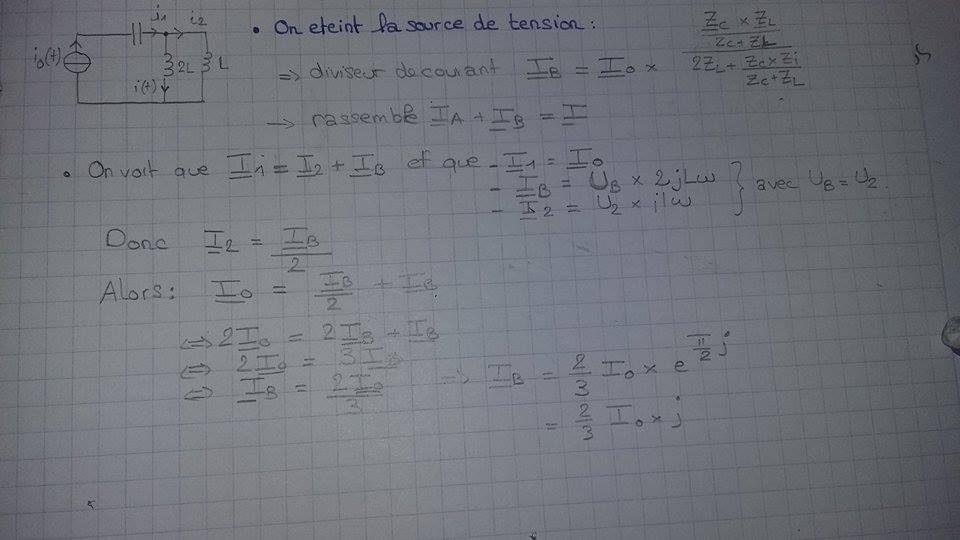 i₁ i₂
i₀(t) 2L L
i(t)
• On eteint la source de tension :
=> diviseur de courant I_B = I₀ × (Z_C × Z_L / Z_C + Z_L) / (2Z_L + Z_C × Z_i / Z_C + Z_L)
→ rassemble I_A + I_B = I
• On voit que I₁ = I₂ + I_B et que - I₁ = I₀
- I_B = U_B × 2jLω
- I₂ = U₂ × jlω } avec U_B = U₂.
Donc I₂ = I_B / 2
Alors : I₀ = I_B / 2 + I_B
<=> 2I₀ = 2I_B + I_B
<=> 2I₀ = 3I_B
<=> I_B = 2I₀ / 3 => I_B = 2/3 I₀ × e^(π/2 j)
= 2/3 I₀ × j